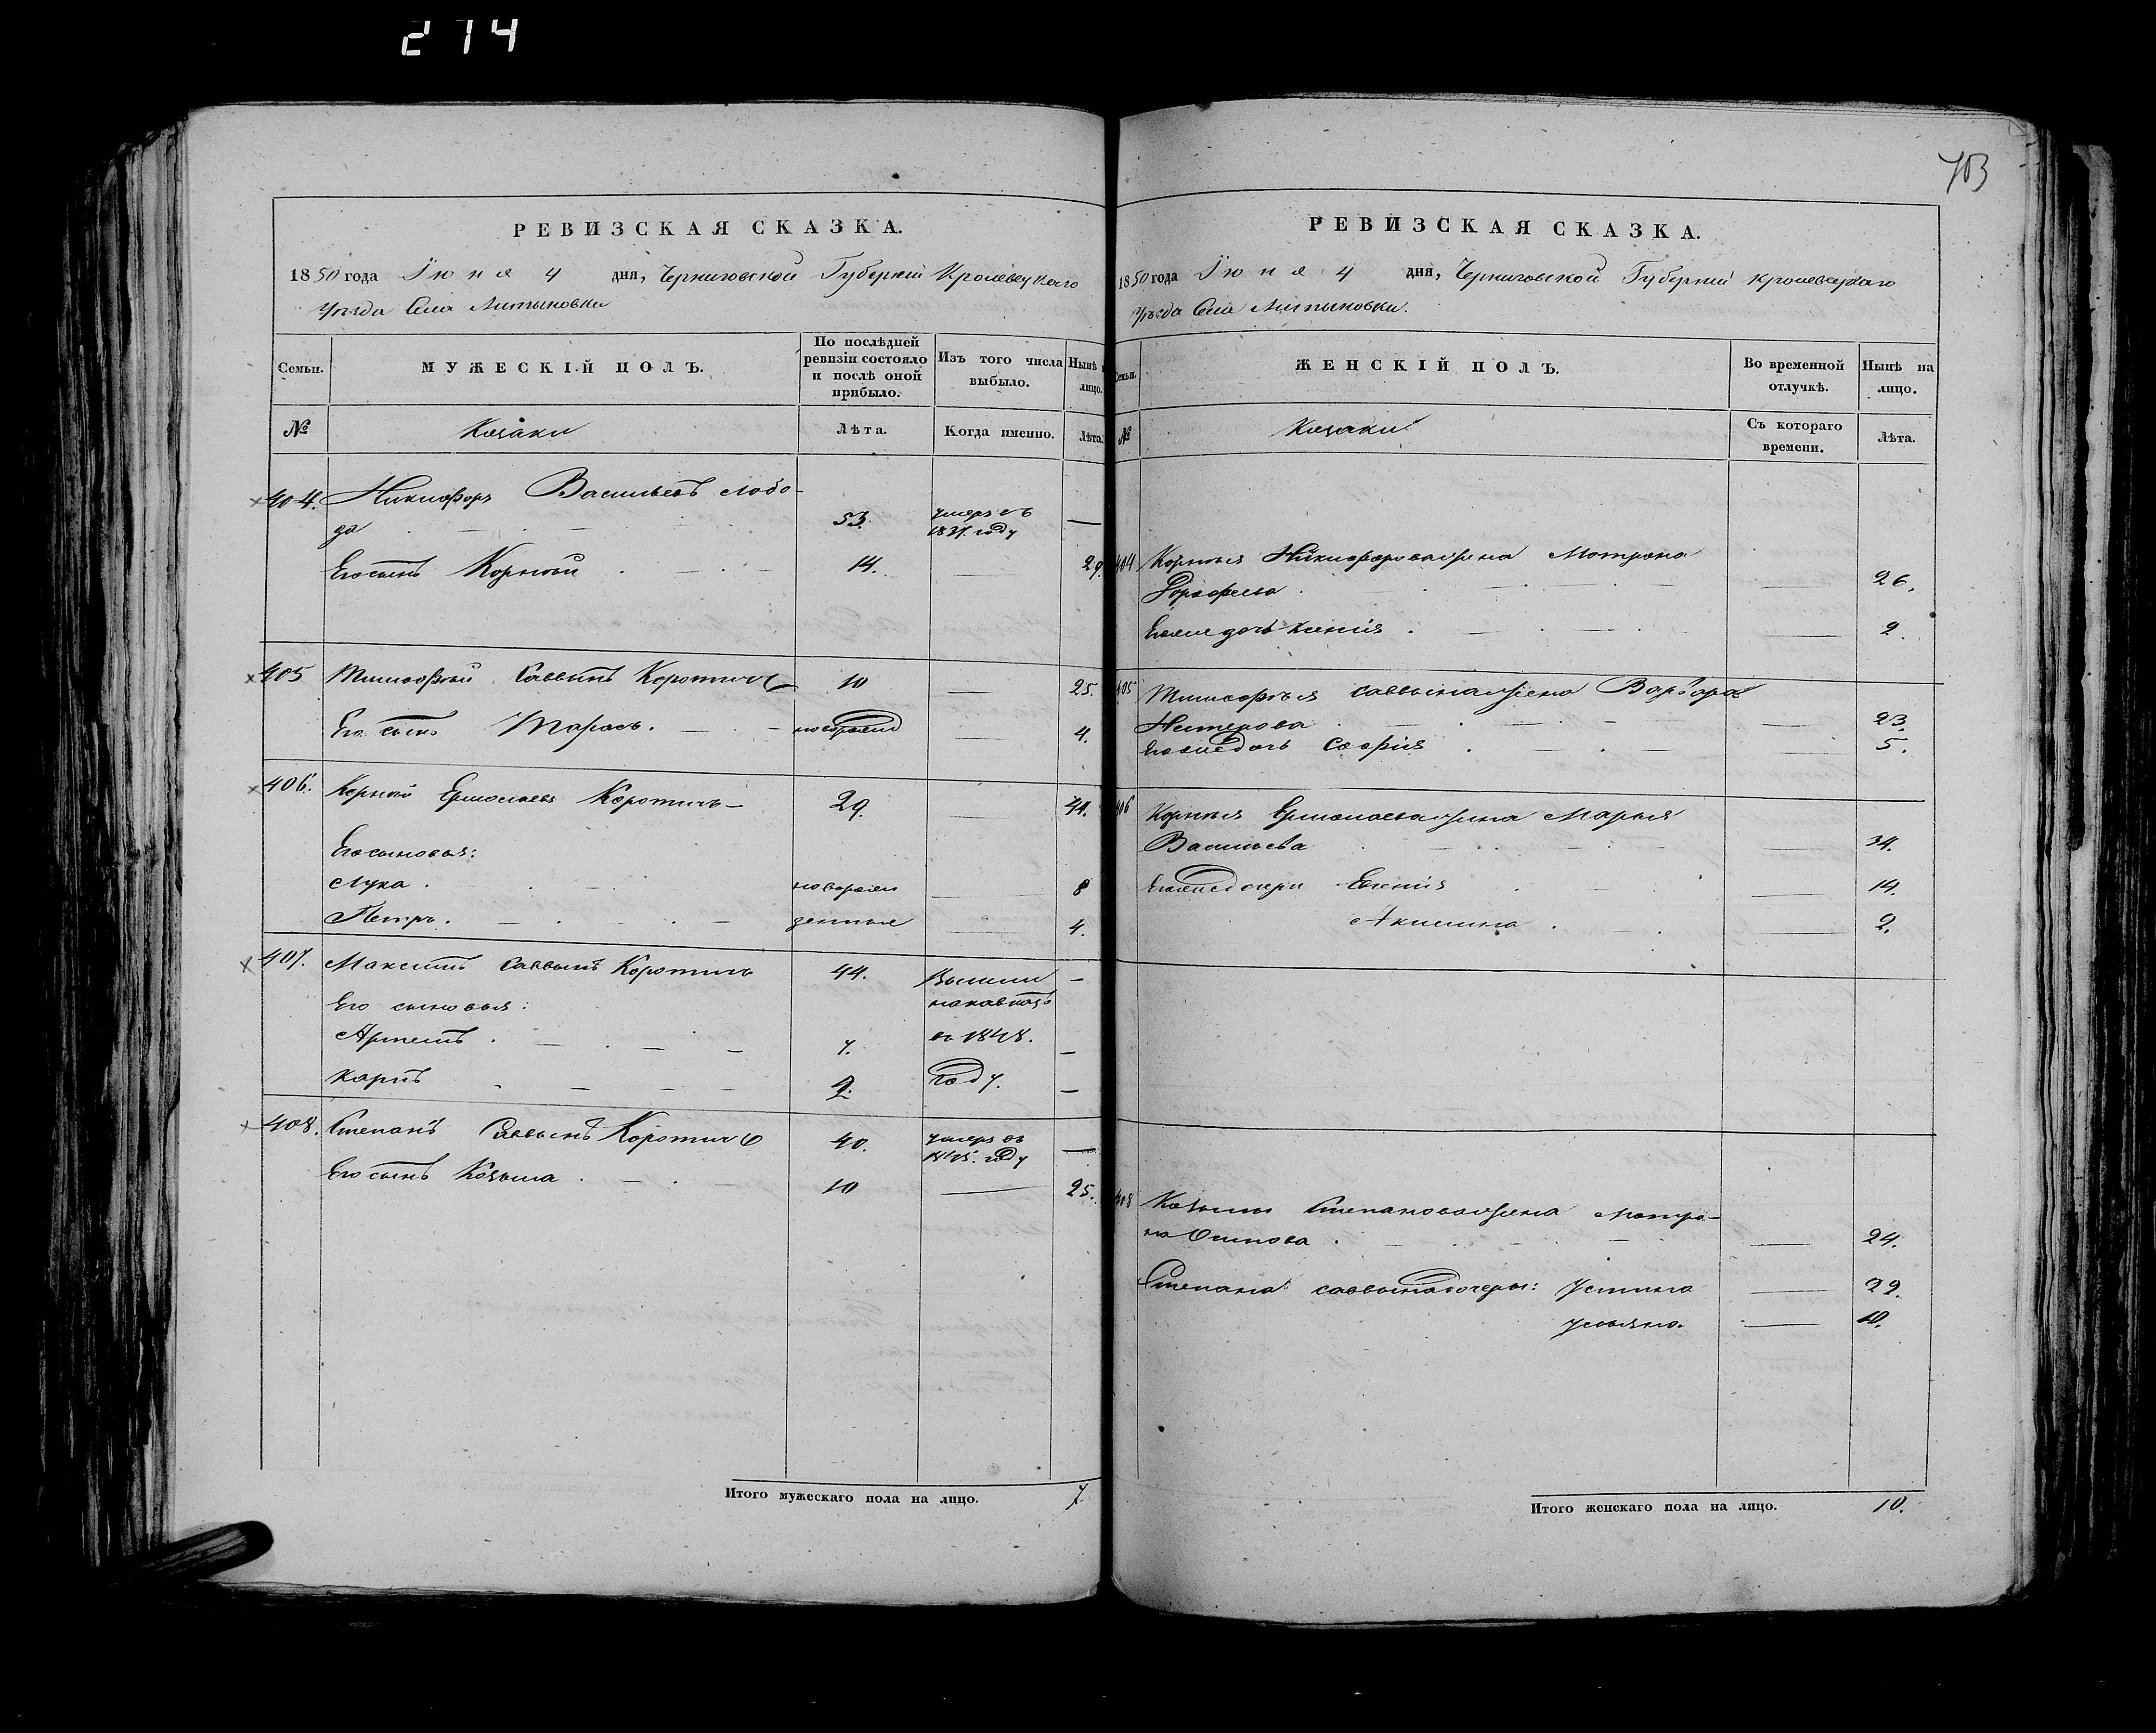 274
РЕВИЗСКАЯ СКАЗКА.
1850 года Іюня 4 дня, Черниговской Губерніи Кролевецкаго
уѣзда Села Литвиновки
Семьи.
МУЖЕСКІЙ ПОЛЪ.
По послѣдней
ревизіи состояло
и послѣ оной
прибыло.
Изъ того числа
выбыло.
Нынѣ
лицо.
№
Козаки
Лѣта.
Когда именно.
Лѣта.
404. Никифоръ Васильевъ Лобо-
да 53. умеръ въ —
183 году
Его сынъ Корній 14. — 29.
405 Тимофѣй Саввинъ Коротичъ 10 — 25.
Его сынъ Тарасъ. новорожд — 4.
406. Корній Ермолаевъ Коротичъ 29. — 44.
Его сыновья:
Лука. новорож — 8
Петръ. денные — 4.
407. Максимъ Саввинъ Коротичъ 44. Вышли —
Его сыновья: на кавказъ
Артемъ. 7. въ 1848. —
Карпъ 2. году. —
408. Степанъ Саввинъ Коротичъ 40. умеръ въ —
1845. году
Его сынъ Козьма 10 — 25.
Итого мужескаго пола на лицо. 7
703
РЕВИЗСКАЯ СКАЗКА.
1850 года Іюня 4 дня, Черниговской Губерніи Кролевецкаго
уѣзда Села Литвиновки.
Семьи.
ЖЕНСКІЙ ПОЛЪ.
Во временной
отлучкѣ.
Нынѣ на
лицо.
№
Козаки
Съ котораго
времени.
Лѣта.
404 Корнія Никифорова жена Матрона
— 26.
Его же дочь Ксенія. — 2.
405 Тимофѣя Саввина жена Варвара
Нестерова — 23.
Его же дочь Софія — 5.
406 Корнія Ермолаева жена Марья
Васильева 34.
Его же дочери Евгенія — 14.
Акилина — 2.
408 Козьмы Степанова жена Матро-
на Осипова — 24.
Степана Саввина дочери: Устина — 22.
Ульяна. — 10.
Итого женскаго пола на лицо. 10.